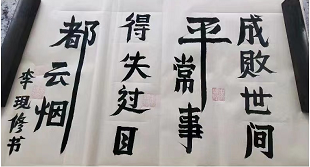 成败世间
平常事
得失过目
都云烟
李现修书